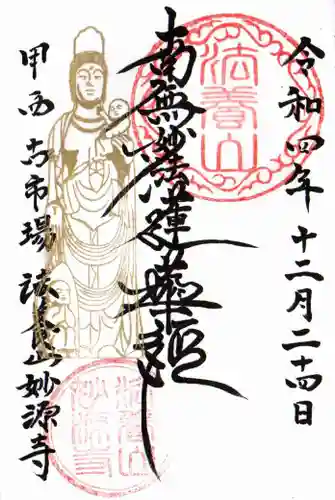 令和四年十二月二十四日
南無妙法蓮華経
甲西古市場法養山妙源寺
法養山
法養山
妙源寺